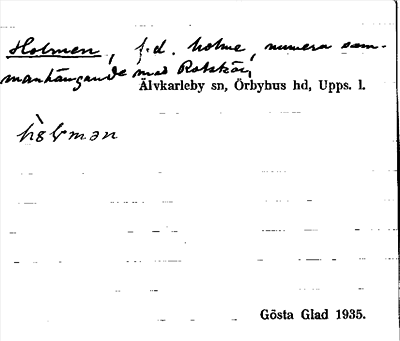 Holmen, f.d. holme, numera sam-
manhängande med Rotskär,
Älvkarleby sn, Örbyhus hd, Upps. l.
Gösta Glad 1935.